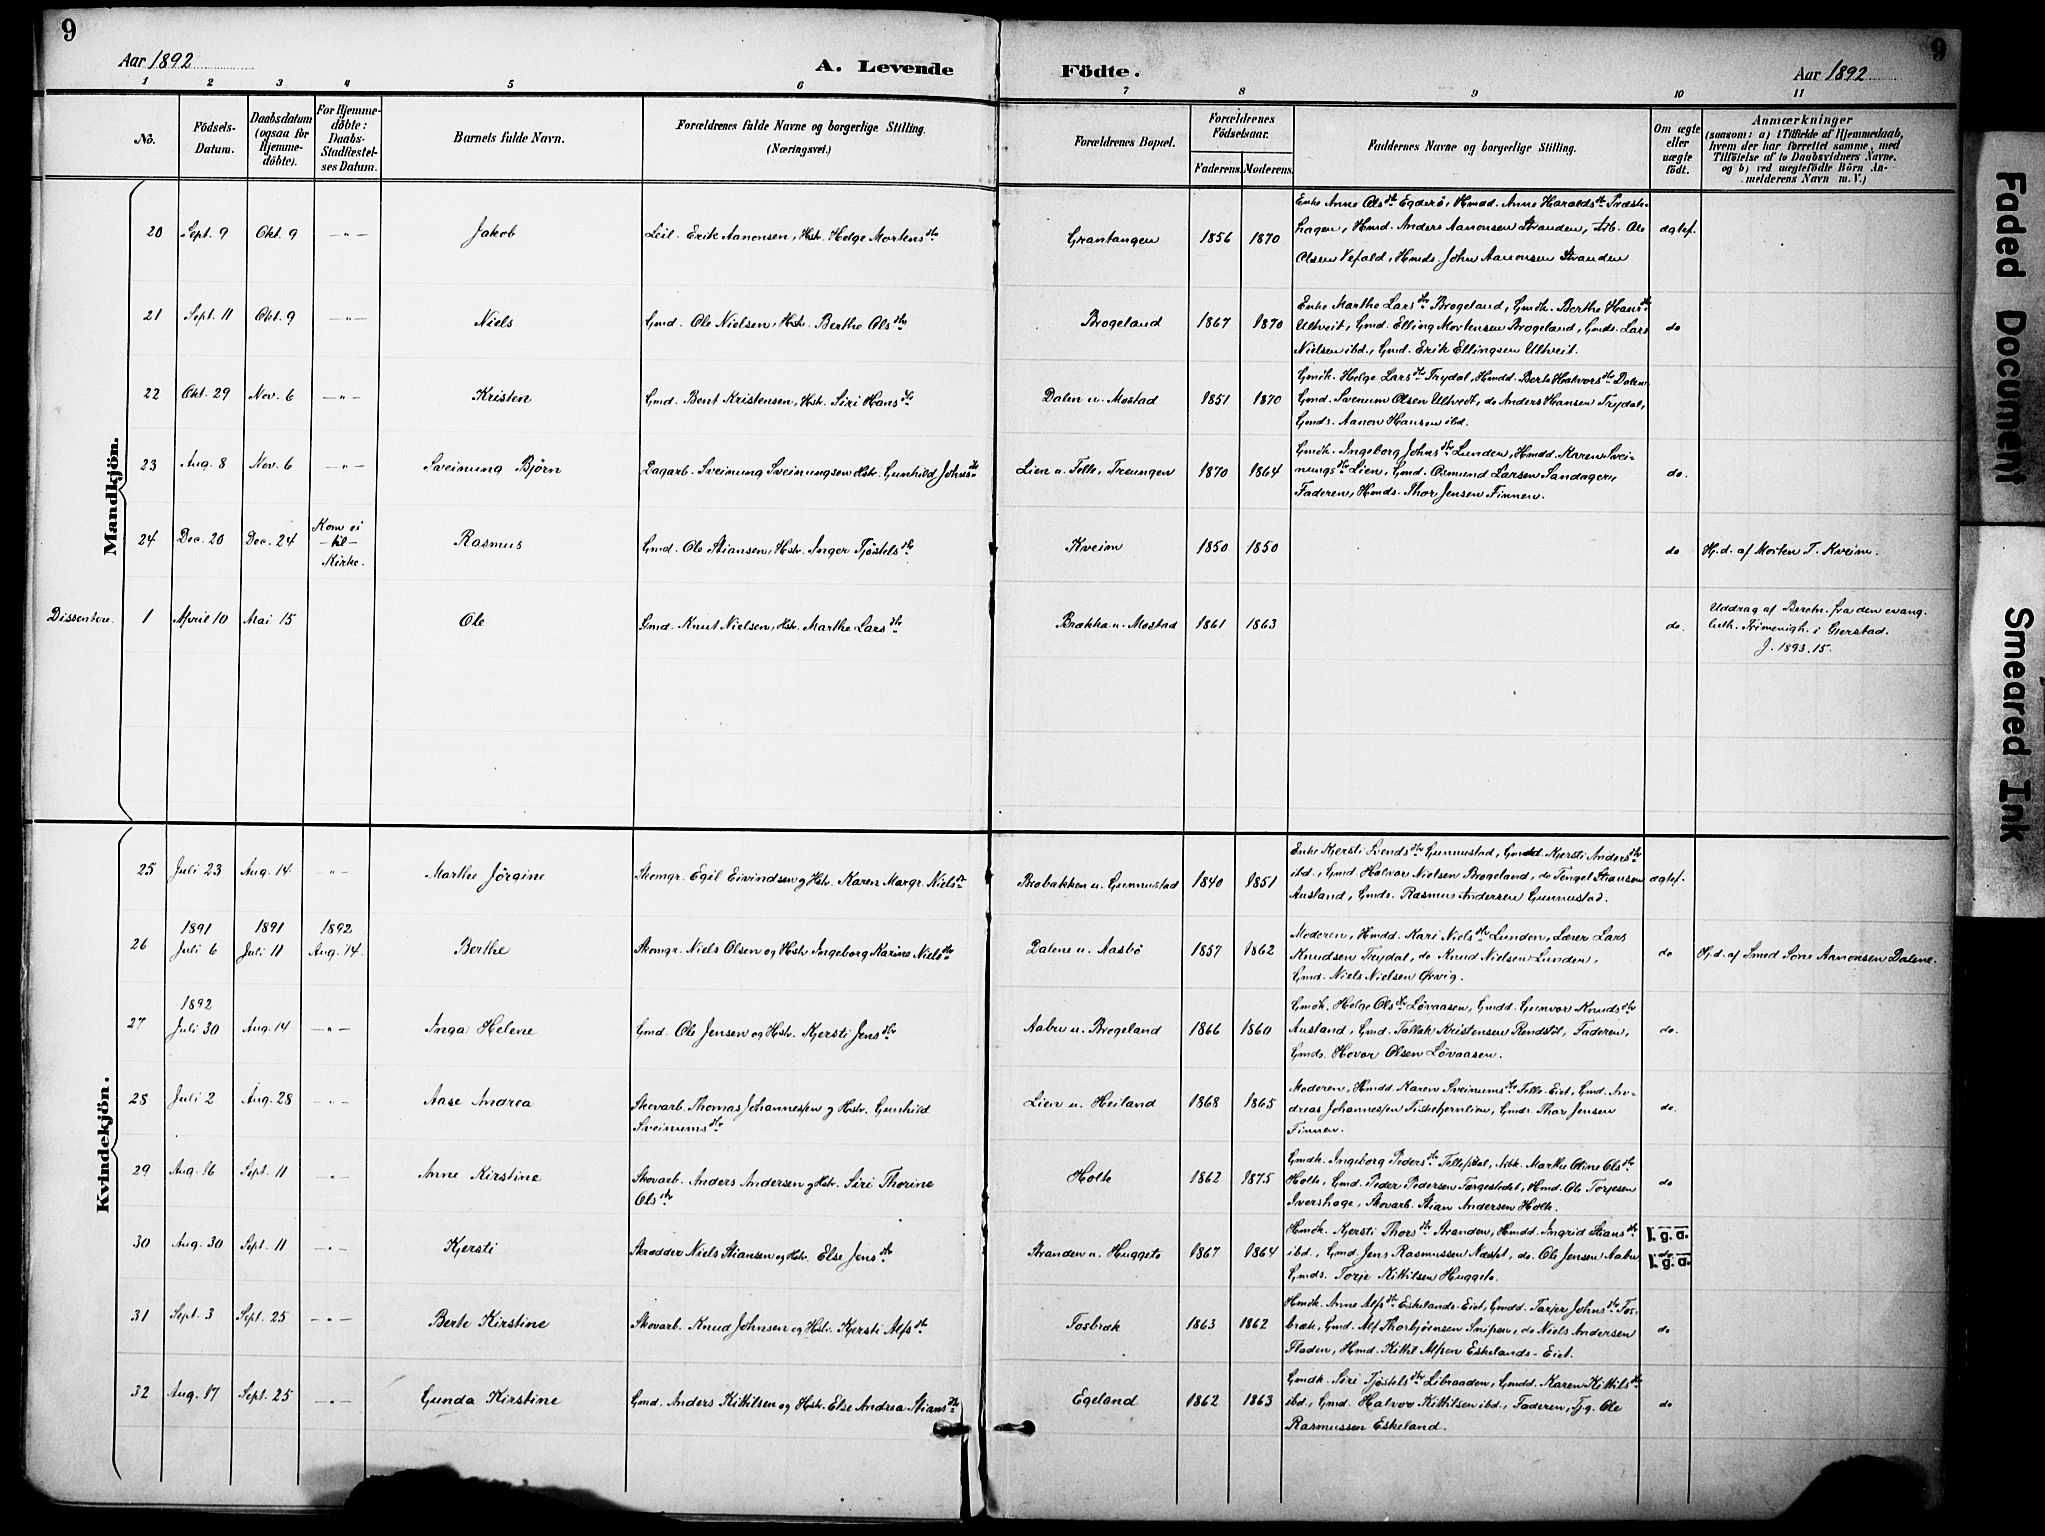 9
9
Aar 1892
A. Levende
Födte.
Aar 1892
1 2 3 4 5 6 7 8 9 10 11
No.
Födsels-
Datum.
Daabsdatum
(ogsaa for
Hjemme-
döbte).
For Hjemme-
döbte:
Daabs-
Stadfæstel-
ses Datum.
Barnets fulde Navn.
Forældrenes fulde Navne og borgerlige Stilling.
(Næringsvei.)
Forældrenes Bopæl.
Forældrenes
Födselsaar.
Faderens. Moderens.
Faddernes Navne og borgerlige Stilling.
Om ægte
eller
uægte
födt.
Anmærkninger
(saasom: a) i Tilfælde af Hjemmedaab,
hvem der har forrettet samme, med
Tilföielse af to Daabsvidners Navne,
og b) ved uægtefödte Börn An-
melderens Navn m. V.)
Mandkjön.
20 Sept. 9 Okt. 9 —"— Jakob Leil. Erik Aanonsen, Hstr. Helge Mortensdtr Grantangen 1856 1870
Enke Anne Olsdtr Egderö, Hmd. Anne Haraldsdtr Præst-
hagen, Hmd. Anders Aanonsen Stranden, Arb. Ole
Olsen Vefald, Hmds. John Aanonsen Stranden
ægtef.
21 Sept. 11 Okt. 9 —"— Niels Gmd. Ole Nielsen, Hstr. Berthe Olsdtr Brogeland 1867 1870
Enke Marthe Larsdtr Brogeland, Gmdk. Berthe Hansdtr
Ultveit, Gmd. Elling Mortensen Brogeland, Gmds. Lars
Nielsen ibd., Gmd. Erik Ellingsen Ultveit.
do
22 Okt. 29 Nov. 6 —"— Kristen Gmd. Bent Kristensen, Hstr. Siri Hansdtr Dalen u. Mostad 1851 1870
Gmdk. Helge Larsdtr Trydal, Hmdd. Berte Halvorsdtr Dalen
Gmd. Svenum Olsen Ultvedt, do Anders Hansen Trydal,
Gmds. Aanon Hansen ibd.
do
23 Aug. 8 Nov. 6 —"— Sveinung Björn Dagarb. Sveinung Sveinungsen Hstr. Gunhild Johnsdtr Lien u. Felle, Treungen 1870 1864
Gmdk. Ingeborg Johnsdtr Lunden, Hmdd. Karen Svei-
nungsdtr Lien, Gmd. Osmund Larsen Sandager,
Faderen, Hmds. Thor Jensen Finnen.
do.
24 Dec. 20 Dec. 24 Kom ei
—til—
Kirke.
Rasmus Gmd. Ole Stiansen, Hstr. Inger Tjöstelsdtr Kveim 1850 1850 do Hj.d. af Morten T. Kveim.
Dissentere. 1 April 10 Mai 15 Ole Gmd. Knut Nielsen, Hstr. Marthe Larsdtr Brækka u. Mostad 1861 1863 do.
Uddrag af Beretn. fra den evang.
luth. Frimenigh. i Gjerstad.
J. 1893.15.
Kvindekjön.
25 Juli 23 Aug. 14 —"— Marthe Jörgine Skomgr. Egil Eivindsen og Hstr. Karen Margr. Nielsdtr Brobakken u. Gunnustad 1840 1851
Enke Kjersti Svendsdtr Gunnustad, Gmdd. Kjersti Andersdtr
ibd., Gmd. Halvor Nielsen Brogeland, do Tengel Stiansen
Ausland, Gmds. Rasmus Andersen Gunnustad.
ægtef.
26 1891
Juli 6
1891
Juli 11
1892
Aug. 14.
Berthe Skomgr. Niels Olsen og Hstr. Ingeborg Karine Nielsdtr Dalene u. Aasbö 1857 1862
Moderen, Hmdd. Kari Nielsdtr Lunden, Lærer Lars
Knudsen Trydal, do Knud Nielsen Lunden,
Gmd. Niels Nielsen Örvig.
do Hj.d. af Smed Sone Aanonsen Dalene.
27 1892
Juli 30 Aug. 14 —"— Inga Helene Gmd. Ole Jensen og Hstr. Kjersti Jensdtr Aabru u. Brogeland 1866 1860
Gmdk. Helge Olsdtr Lövaasen, Gmdd. Gunvor Knudsdtr
Ausland, Gmd. Tallak Kristensen Rendstöl, Faderen,
Gmds. Hovar Olsen Lövaasen.
do.
28 Juli 2 Aug. 28 —"— Aase Andrea Skovarb. Thomas Johannessen og Hstr. Gunhild
Sveinumsdtr
Lien u. Heiland 1868 1865
Moderen, Hmdd. Karen Sveinumsdtr Felle-Eiet, Gmd. An-
dreas Johannessen Fisketjernlien, Gmds. Thor Jensen
Finnen.
do.
29 Aug. 16 Sept. 11 —"— Anne Kirstine Skovarb. Anders Andersen og Hstr. Siri Thorine
Olsdtr
Holte 1862 1875
Gmdk. Ingeborg Pedersdtr Fellefidal, Arbk. Marthe Oline Olsdtr
Holte, Gmd. Peder Pedersen Færgestedet, Hmd. Ole Torjesen
Ivershage, Skovarb. Stian Andersen Holte.
do
30 Aug. 30 Sept. 11 —"— Kjersti Skrædder Niels Stiansen og Hstr. Else Jensdtr Stranden u. Huggeto 1867 1864
Hmdk. Kjersti Thorsdtr Stranden, Hmdd. Ingrid Stiansdtr
ibd., Gmd. Jens Rasmussen Næset, do. Ole Jensen Aabru
Gmds. Torje Kittilsen Huggeto.
I. g. a.
do
I. g. a.
31 Sept. 3 Sept. 25 —"— Berte Kirstine Skovarb. Knud Johnsen og Hstr. Kjersti Alfsdtr Fosbæk 1863 1862
Hmdk. Anne Alfsdtr Eskelands-Eiet, Gmdd. Tarjer Johnsdtr Fos-
bræk, Gmd. Alf Thorbjörnsen Snipen, do Niels Andersen
Fladen, Hmd. Kittil Alfsen Eskelands-Eiet.
do
32 Aug. 17 Sept. 25 —"— Gunda Kirstine Gmd. Anders Kittilsen og Hstr. Else Andrea Stiansdtr Egeland 1862 1863
Gmdk. Siri Tjöstelsdtr Libraaden, Gmdd. Karen Kittilsdtr
ibd., Gmd. Halvor Kittilsen ibd., Faderen, Tjg. Ole
Rasmussen Eskeland.
do
Faded Document
Smeared Ink